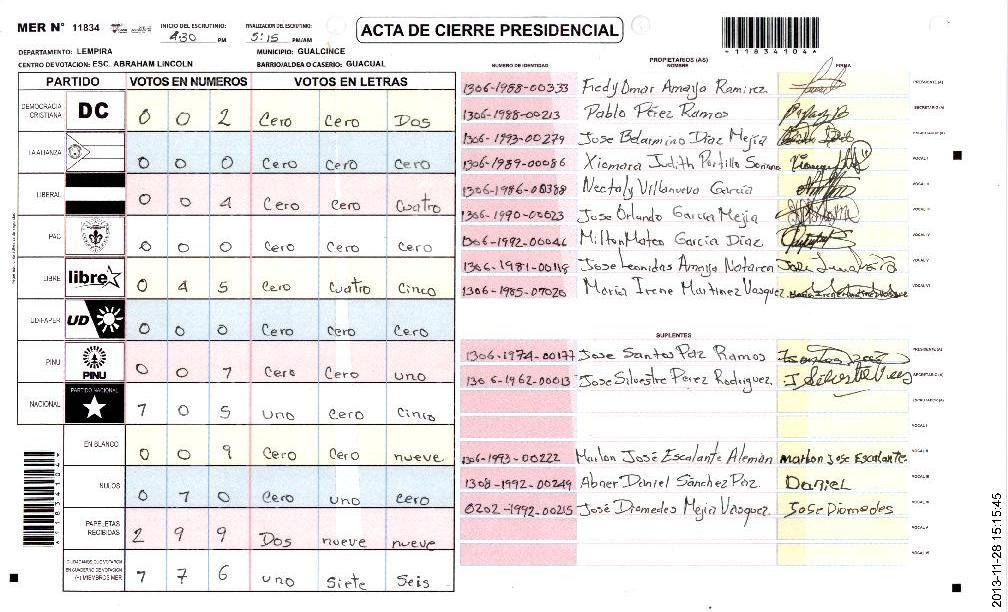 MER N° 11834
INICIO DEL ESCRUTINIO: 4:30 PM
FINALIZACION DEL ESCRUTINIO: 5:15 PM/AM
ACTA DE CIERRE PRESIDENCIAL
*11834104*
DEPARTAMENTO: LEMPIRA
MUNICIPIO: GUALCINCE
CENTRO DE VOTACION: ESC. ABRAHAM LINCOLN
BARRIO/ALDEA O CASERIO: GUACUAL
PARTIDO VOTOS EN NUMEROS VOTOS EN LETRAS
DEMOCRACIA CRISTIANA DC 0 0 2 Cero Cero Dos
LA ALIANZA 0 0 0 Cero Cero Cero
LIBERAL 0 0 4 Cero Cero Cuatro
PAC 0 0 0 Cero Cero Cero
LIBRE libre 0 4 5 Cero Cuatro Cinco
UD-FAPER UD 0 0 0 Cero Cero Cero
PINU PINU 0 0 1 Cero Cero uno
NACIONAL PARTIDO NACIONAL 1 0 5 uno Cero Cinco
EN BLANCO 0 0 9 Cero Cero nueve
NULOS 0 1 0 Cero uno Cero
PAPELETAS RECIBIDAS 2 9 9 Dos nueve nueve
CIUDADANOS QUE VOTARON EN CUADERNO DE VOTACION (+) MIEMBROS MER 1 7 6 uno Siete Seis
PROPIETARIOS (AS)
NUMERO DE IDENTIDAD NOMBRE FIRMA
1306-1988-00333 Fredy Omar Amaya Ramirez PRESIDENTE (A)
1306-1988-00213 Pablo Pérez Ramos SECRETARIO (A)
1306-1993-00279 Jose Belarmino Díaz Mejía
1306-1989-00086 Xiomara Judith Portillo Soriano VOCAL I
1306-1986-00388 Nectaly Villanueva García VOCAL II
1306-1990-00023 Jose Orlando García Mejía VOCAL III
1306-1992-00046 Milton Mateo García Díaz VOCAL IV
1306-1981-00118 Jose Leonidas Amaya VOCAL V
1306-1985-07020 María Irene Martinez Vasquez María Irene Martinez Vasquez VOCAL VI
SUPLENTES
1306-1974-00177 Jose Santos Paz Ramos PRESIDENTE (A)
1306-1962-00013 Jose Silvestre Perez Rodriguez SECRETARIO (A)
ESCRUTADOR (A)
VOCAL I
1306-1993-00222 Marlon José Escalante Alemán Marlon Jose Escalante VOCAL II
1308-1992-00249 Abner Daniel Sánchez Paz Daniel VOCAL III
0202-1992-00215 José Diomedes Mejía Vasquez Jose Diomedes VOCAL IV
VOCAL V
VOCAL VI
*11834104*
2013-11-28 15:15:45